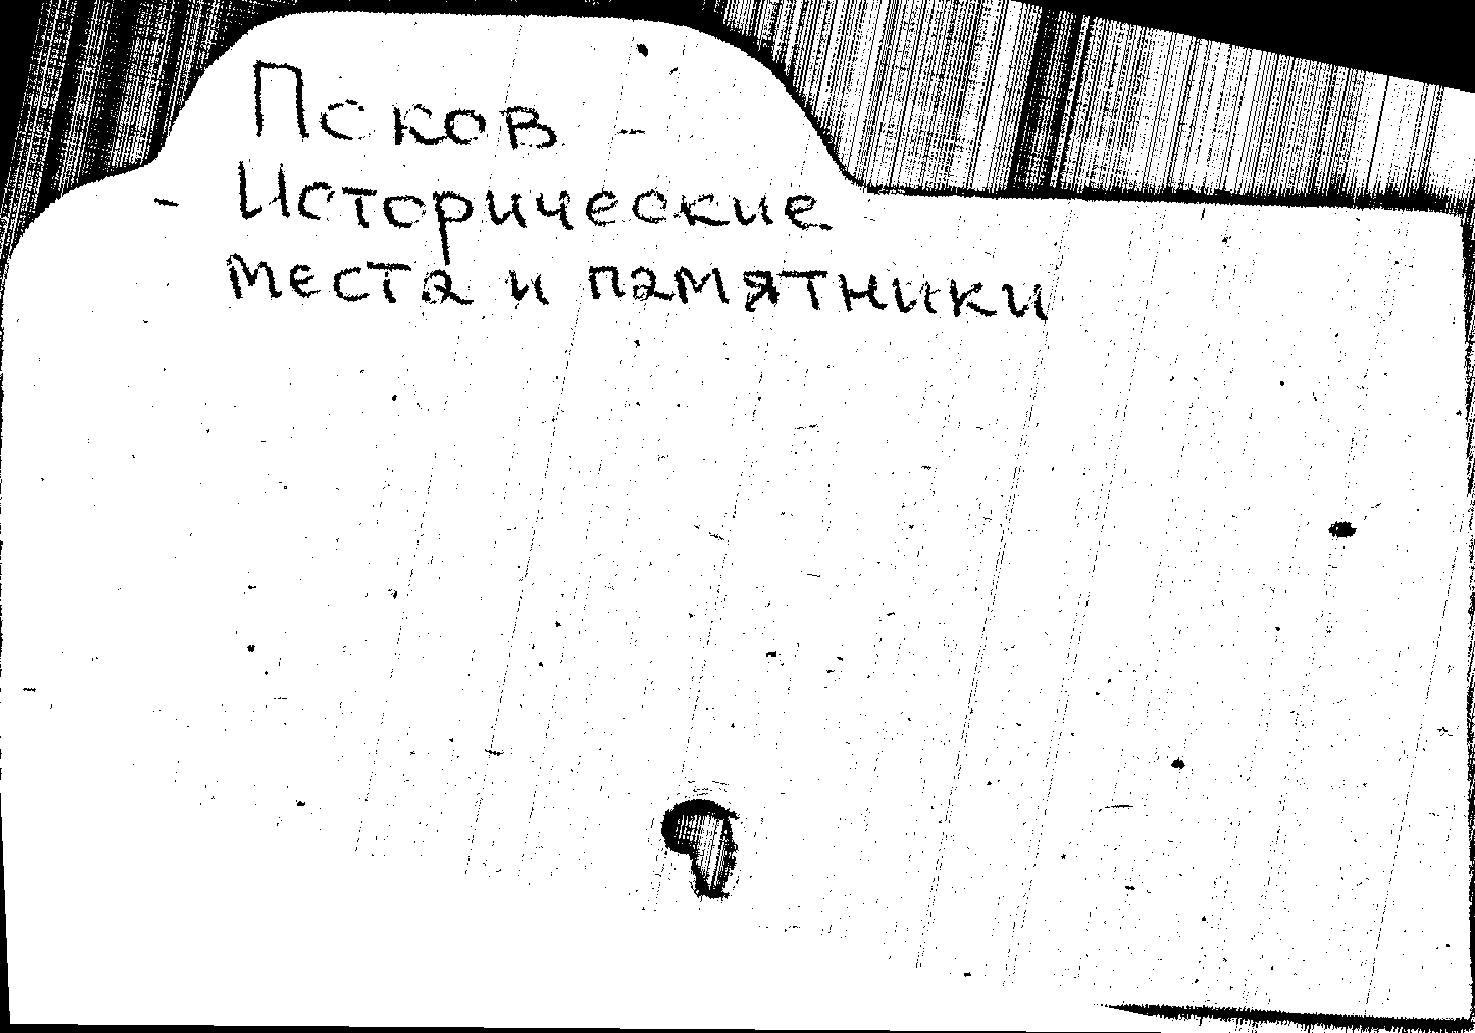 Псков -
- Исторические
места и памятники